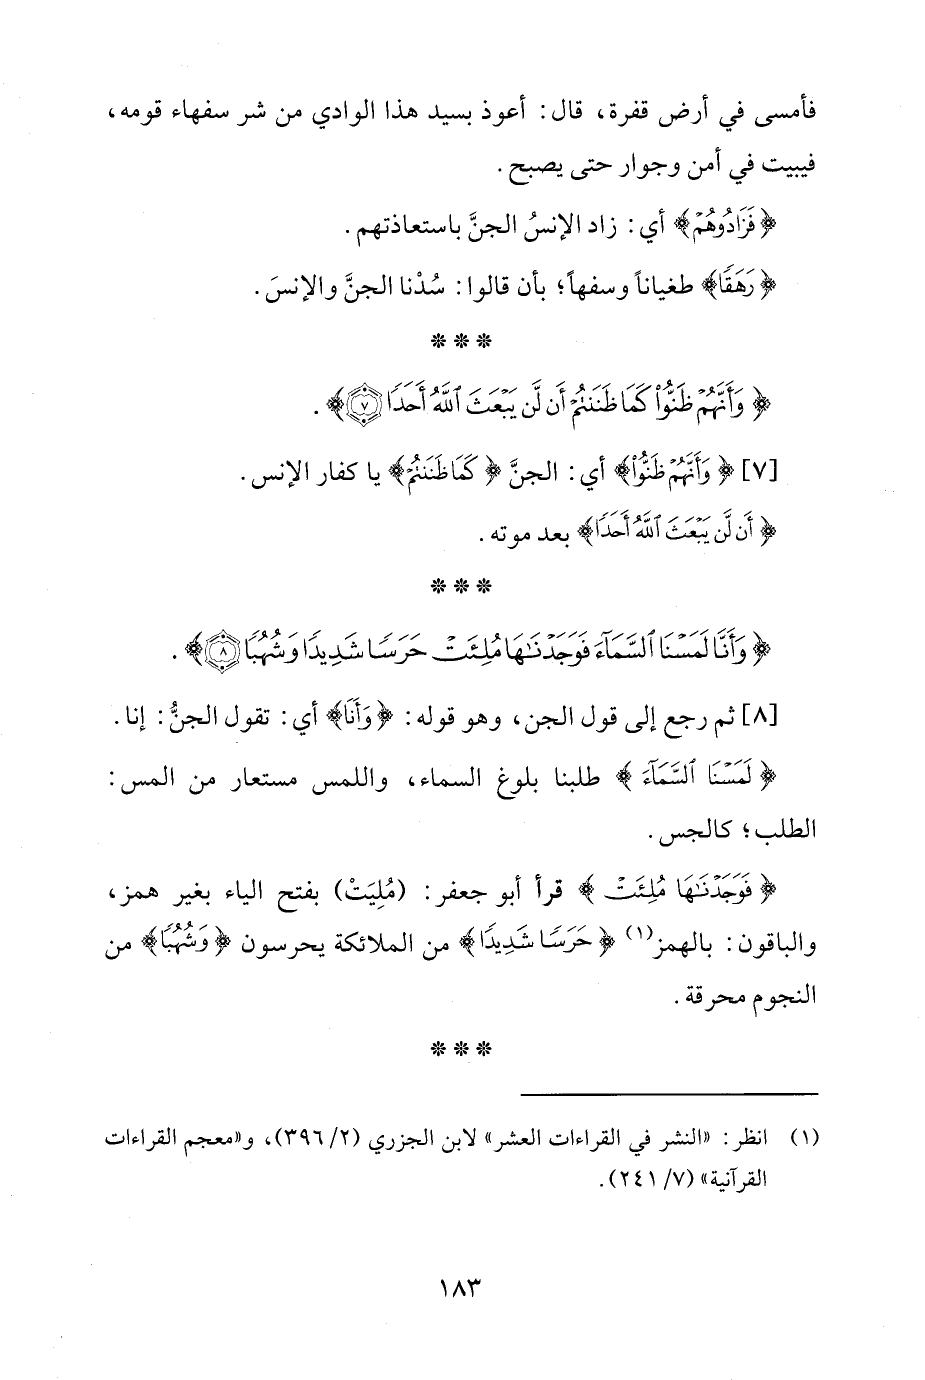 فأمسى في أرض قفرة، قال: أعوذ بسيد هذا الوادي من شر سفهاء قومه،
فيبيت في أمن وجوار حتى يصبح.
﴿فَزَادُوهُمْ﴾ أي: زاد الإنسُ الجنَّ باستعاذتهم.
﴿رَهَقًا﴾ طغياناً وسفهاً؛ بأن قالوا: سُدْنا الجنَّ والإنسَ.
* * *
﴿وَأَنَّهُمْ ظَنُّوا۟ كَمَا ظَنَنتُمْ أَن لَّن يَبْعَثَ ٱللَّهُ أَحَدًا ٧﴾.
[٧] ﴿وَأَنَّهُمْ ظَنُّوا۟﴾ أي: الجنَّ ﴿كَمَا ظَنَنتُمْ﴾ يا كفار الإنس.
﴿أَن لَّن يَبْعَثَ ٱللَّهُ أَحَدًا﴾ بعد موته.
* * *
﴿وَأَنَّا لَمَسْنَا ٱلسَّمَآءَ فَوَجَدْنَٰهَا مُلِئَتْ حَرَسًا شَدِيدًا وَشُهُبًا ٨﴾.
[٨] ثم رجع إلى قول الجن، وهو قوله: ﴿وَأَنَّا﴾ أي: تقول الجنُّ: إنا.
﴿لَمَسْنَا ٱلسَّمَآءَ﴾ طلبنا بلوغ السماء، واللمس مستعار من المس:
الطلب؛ كالجس.
﴿فَوَجَدْنَٰهَا مُلِئَتْ﴾ قرأ أبو جعفر: (مُلِيَتْ) بفتح الياء بغير همز،
والباقون: بالهمز(١) ﴿حَرَسًا شَدِيدًا﴾ من الملائكة يحرسون ﴿وَشُهُبًا﴾ من
النجوم محرقة.
* * *
(١) انظر: «النشر في القراءات العشر» لابن الجزري (٢/ ٣٩٦)، و«معجم القراءات
القرآنية» (٧/ ٢٤١).
١٨٣